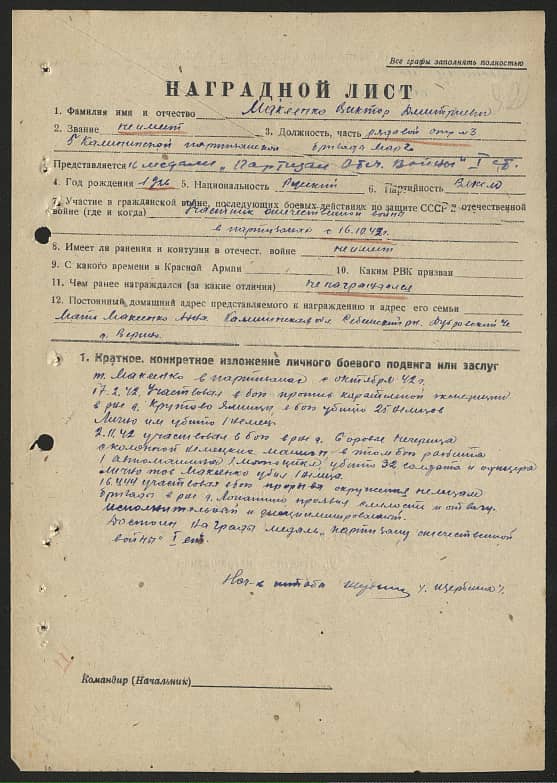 Все графы заполнять полностью
НАГРАДНОЙ ЛИСТ
1. Фамилия имя и отчество Макеенко Виктор Дмитриевич
2. Звание не имеет 3. Должность, часть рядовой отр №3
5 Калининской партизанской бригады
Представляется к медали „Партизан Отеч. Войны" I ст.
4. Год рождения 5. Национальность Русский 6. Партийность
7. Участие в гражданской войне, последующих боевых действиях по защите СССР и отечественной
войне (где и когда) Участник отечественной войны
в партизанах с 16.10.42г.
8. Имеет ли ранения и контузии в отечест. войне не имеет
9. С какого времени в Красной Армии 10. Каким РВК призван
11. Чем ранее награждался (за какие отличия) не награждался
12. Постоянный домашний адрес представляемого к награждению и адрес его семьи
Мать Макеенко Анна. Калининская обл Себежский рн. Дубровский
д.
1. Краткое, конкретное изложение личного боевого подвига или заслуг
т. Макеенко в партизанах с октября 42г.
17.2.42. Участвовал в бою против карательной экспедиции
в рне д. Крутово в бою убито 25 немцев
Лично им убит 1 немец.
2.11.42 участвовал в бою в рне д.
с колонной немецких машин в этом бою разбита
1 автомашина 1 мотоцикл убито 32 солдата и офицера
Лично тов Макеенко убил 1 немца.
16.4.44 участвовал в бою прорыва окружения немцами
бригады в рне д. проявил смелость и отвагу.
исполнительный и дисциплинирован.
Достоин награды медаль „партизану отечественной
войны" I ст.
Нач-к штаба /Щербина/.
Командир (Начальник)